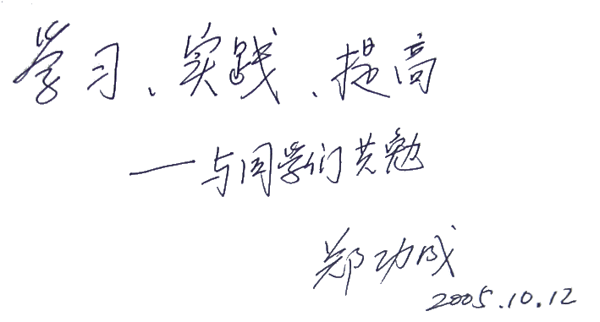 学习、实践、提高
——与同学们共勉
郑功成
2005.10.12